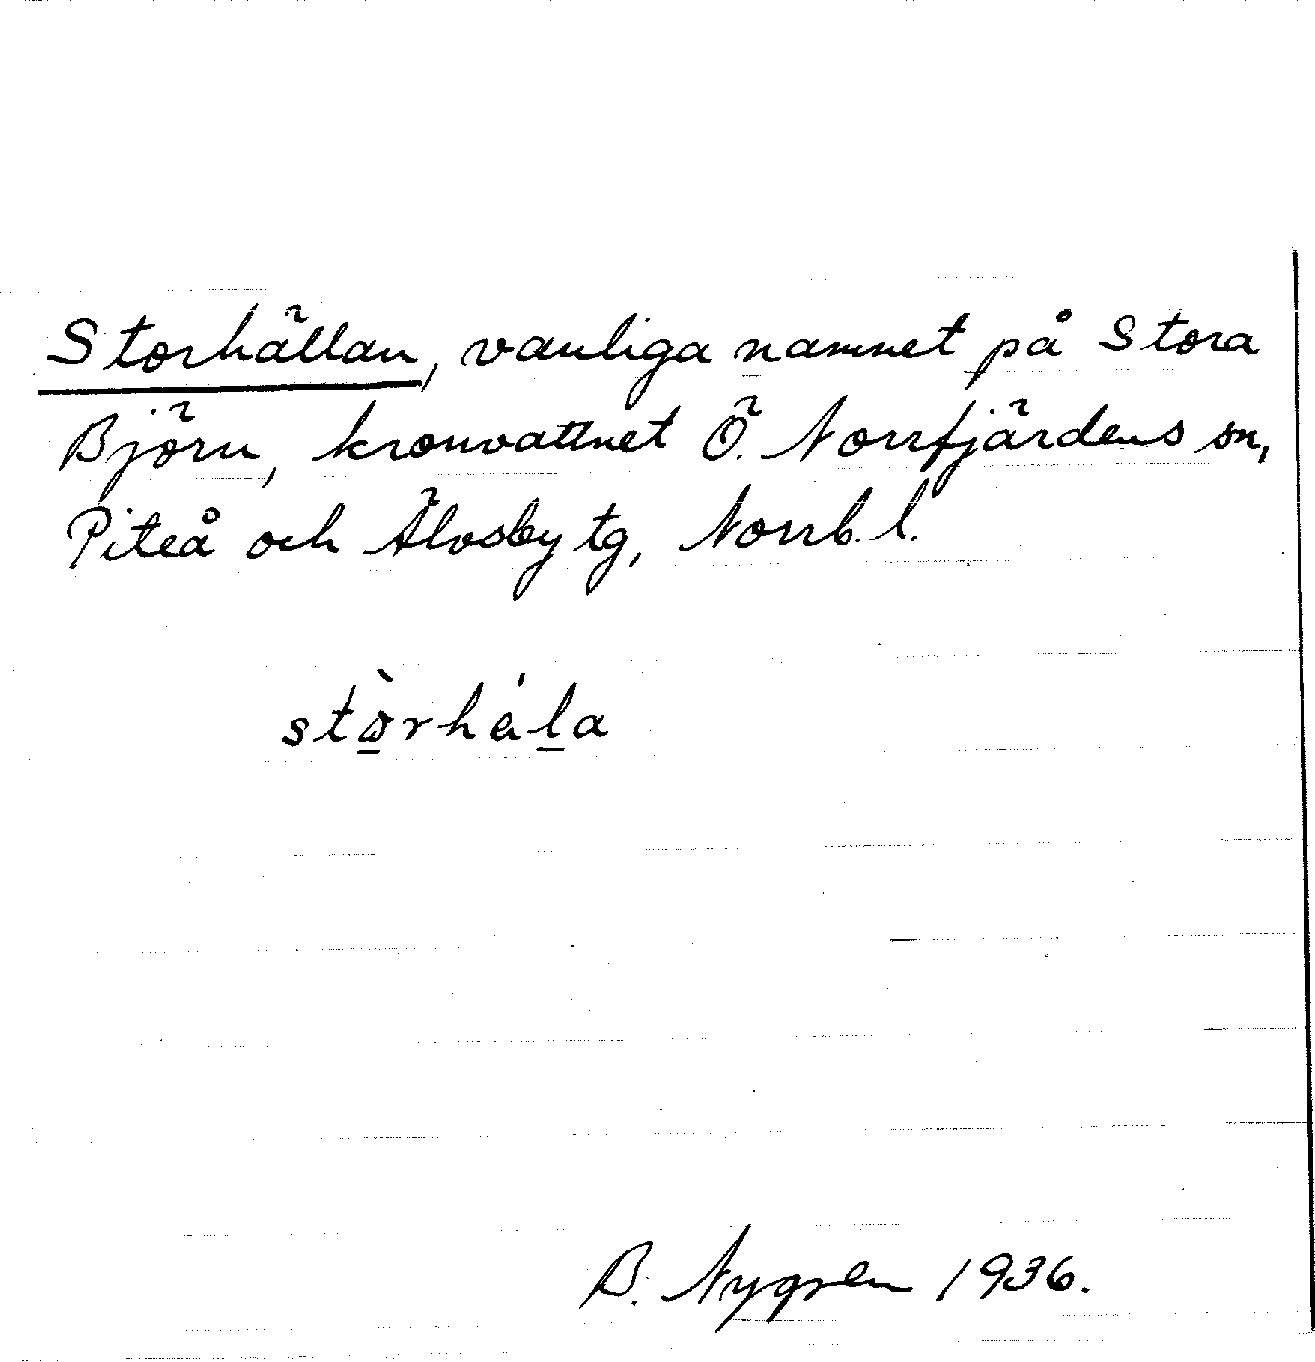 Storhällan, vanliga namnet på Stora
Björn, kronvattnet Ö. Norrfjärdens sn,
Piteå och Älvsby tg, Norrb. l.
stòrhála
B. Nygren 1936.